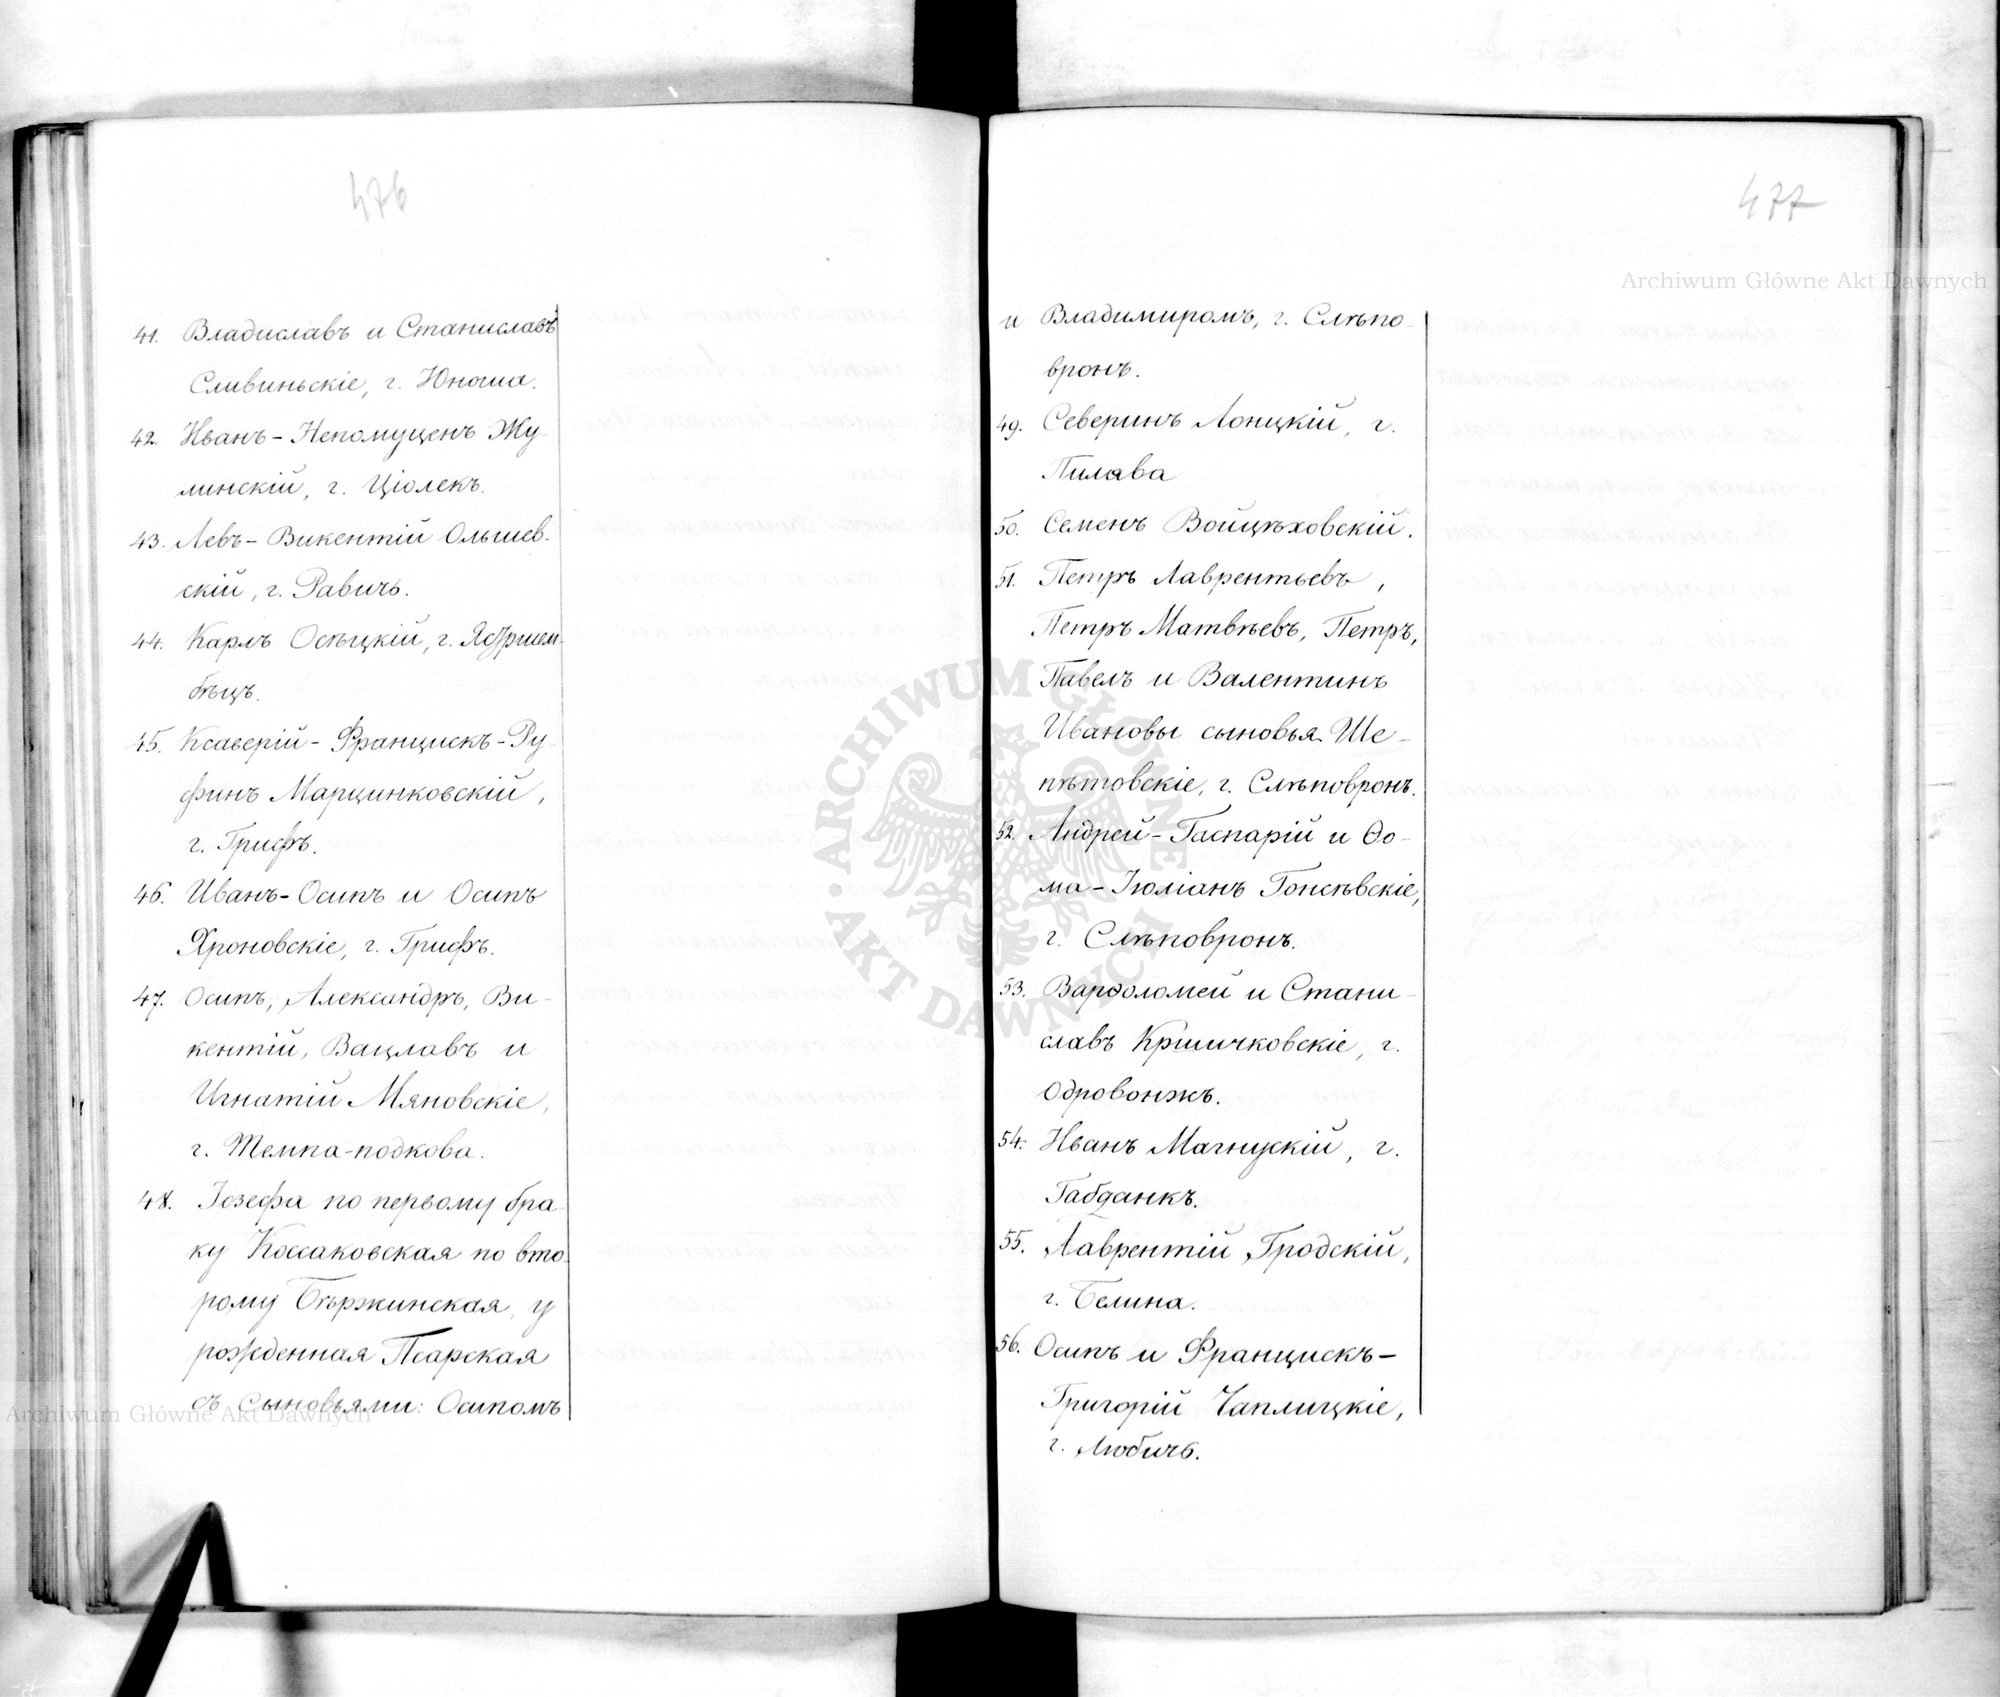 476
41. Владиславъ и Станиславъ
Сливиньскіе, г. Юноша.
42. Иванъ-Непомуценъ Жу-
линскій, г. Ціолекъ.
43. Левъ-Викентій Ольшев-
скій, г. Равичъ.
44. Карлъ Осѣцкій, г. Ястршем-
бѣцъ.
45. Ксаверій-Францискъ-Ру-
финъ Марцинковскій,
г. Грифъ.
46. Иванъ-Осипъ и Осипъ
Хроновскіе, г. Грифъ.
47. Осипъ, Александръ, Ви-
кентій, Вацлавъ и
Игнатій Мяновскіе,
г. Темпа-подкова.
48. Іозефа по первому бра-
ку Коссаковская по вто-
рому Бѣржинская, у
рожденная Псарская
съ сыновьями: Осипомъ
477
и Владимиромъ, г. Слѣпо-
вронъ.
49. Северинъ Лонцкій, г.
Пилава
50. Семенъ Войцѣховскій.
51. Петръ Лаврентьевъ,
Петръ Матвѣевъ, Петръ,
Павелъ и Валентинъ
Ивановы сыновья Ше-
пѣтовскіе, г. Слѣповронъ.
52. Андрей-Гаспарій и Ѳо-
ма-Іюліанъ Гонсѣвскіе,
г. Слѣповронъ.
53. Варѳоломей и Стани-
славъ Кршичковскіе, г.
Одровонжъ.
54. Иванъ Магнускій, г.
Габданкъ.
55. Лаврентій Гродскій,
г. Белина.
56. Осипъ и Францискъ-
Григорій Чаплицкіе,
г. Любичъ.
Archiwum Główne Akt Dawnych
Archiwum Główne Akt Dawnych
ARCHIWUM GŁÓWNE · AKT DAWNYCH ·